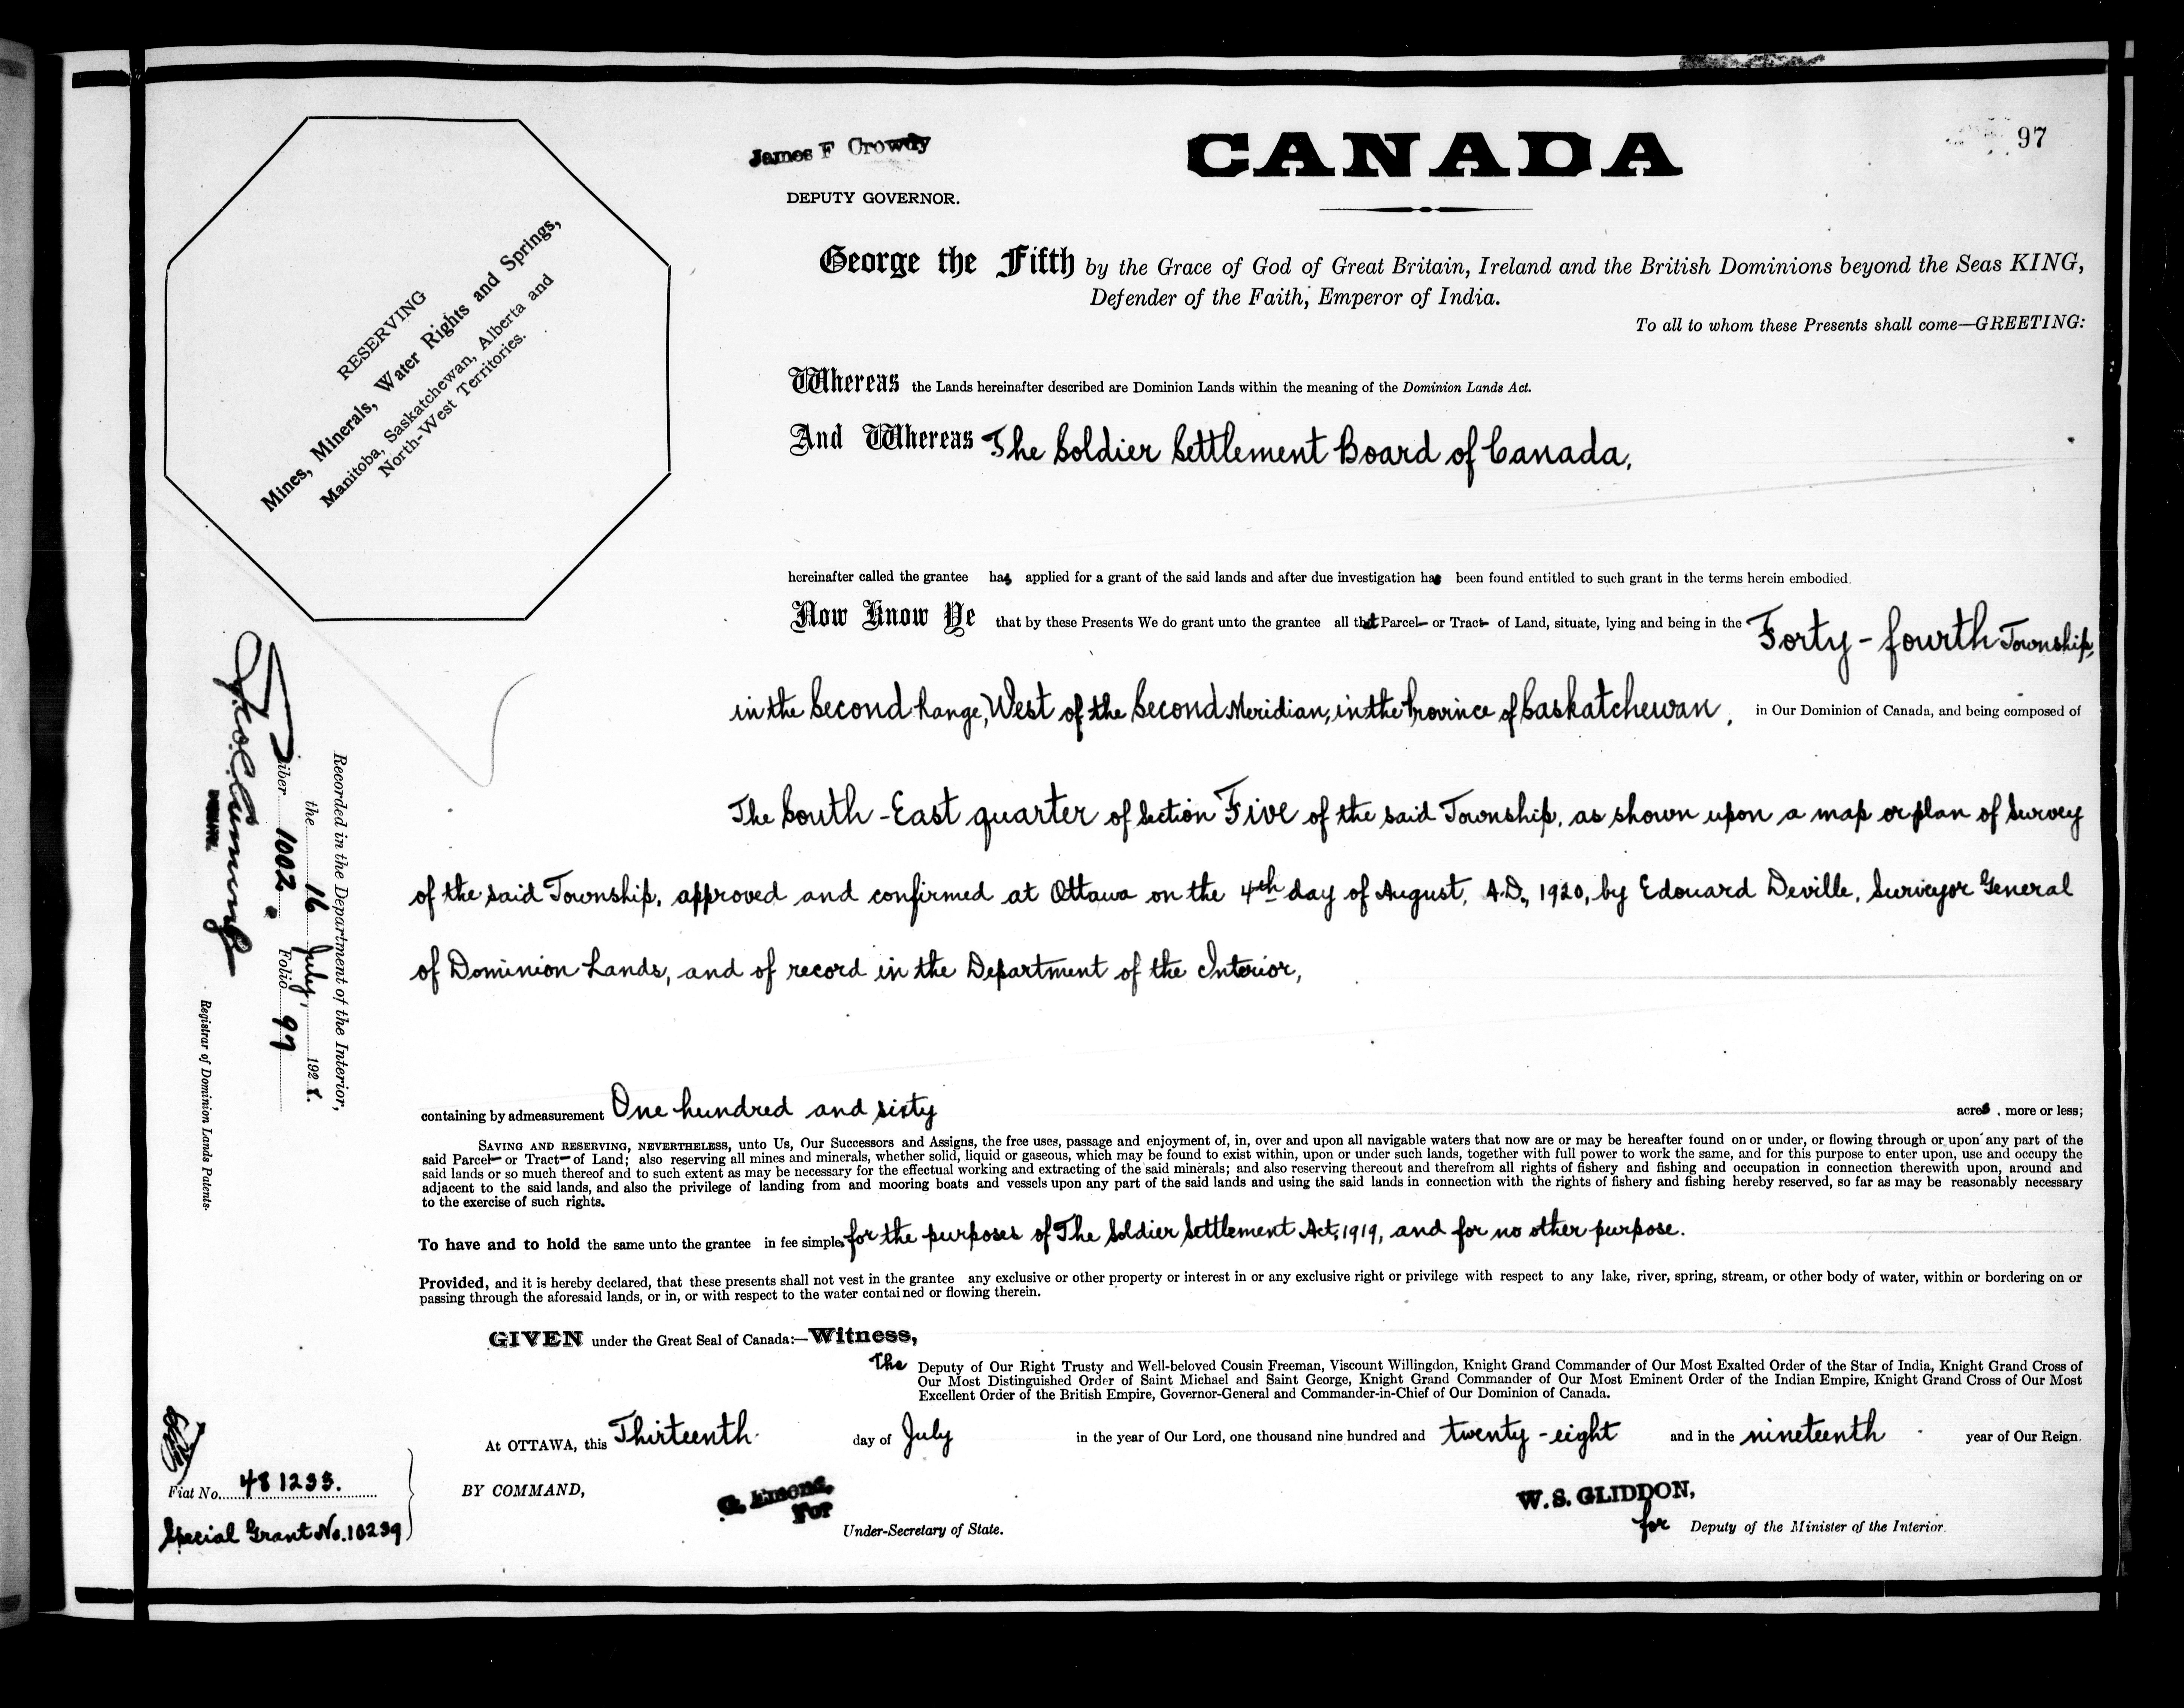 James F Crowdy
DEPUTY GOVERNOR.
CANADA
97
RESERVING
Mines, Minerals, Water Rights and Springs,
Manitoba, Saskatchewan, Alberta and
North-West Territories.
George the Fifth by the Grace of God of Great Britain, Ireland and the British Dominions beyond the Seas KING,
Defender of the Faith, Emperor of India.
To all to whom these Presents shall come—GREETING:
Whereas the Lands hereinafter described are Dominion Lands within the meaning of the Dominion Lands Act.
And Whereas The Soldier Settlement Board of Canada,
hereinafter called the grantee has applied for a grant of the said lands and after due investigation has been found entitled to such grant in the terms herein embodied.
Now Know Ye that by these Presents We do grant unto the grantee all that Parcel or Tract of Land, situate, lying and being in the Forty-fourth Township,
in the Second Range, West of the Second Meridian, in the Province of Saskatchewan, in Our Dominion of Canada, and being composed of
The South-East quarter of Section Five of the said Township, as shown upon a map or plan of survey
of the said Township, approved and confirmed at Ottawa on the 4th day of August, A.D., 1920, by Edouard Deville, Surveyor General
of Dominion Lands, and of record in the Department of the Interior,
Recorded in the Department of the Interior,
the 16 July, 1928.
Liber 1002. Folio 97
Registrar of Dominion Lands Patents.
containing by admeasurement One hundred and sixty acres, more or less;
SAVING AND RESERVING, NEVERTHELESS, unto Us, Our Successors and Assigns, the free uses, passage and enjoyment of, in, over and upon all navigable waters that now are or may be hereafter found on or under, or flowing through or upon any part of the
said Parcel or Tract of Land; also reserving all mines and minerals, whether solid, liquid or gaseous, which may be found to exist within, upon or under such lands, together with full power to work the same, and for this purpose to enter upon, use and occupy the
said lands or so much thereof and to such extent as may be necessary for the effectual working and extracting of the said minerals; and also reserving thereout and therefrom all rights of fishery and fishing and occupation in connection therewith upon, around and
adjacent to the said lands, and also the privilege of landing from and mooring boats and vessels upon any part of the said lands and using the said lands in connection with the rights of fishery and fishing hereby reserved, so far as may be reasonably necessary
to the exercise of such rights.
To have and to hold the same unto the grantee in fee simple, for the purposes of The Soldier Settlement Act, 1919, and for no other purpose.
Provided, and it is hereby declared, that these presents shall not vest in the grantee any exclusive or other property or interest in or any exclusive right or privilege with respect to any lake, river, spring, stream, or other body of water, within or bordering on or
passing through the aforesaid lands, or in, or with respect to the water contained or flowing therein.
GIVEN under the Great Seal of Canada:—Witness,
The Deputy of Our Right Trusty and Well-beloved Cousin Freeman, Viscount Willingdon, Knight Grand Commander of Our Most Exalted Order of the Star of India, Knight Grand Cross of
Our Most Distinguished Order of Saint Michael and Saint George, Knight Grand Commander of Our Most Eminent Order of the Indian Empire, Knight Grand Cross of Our Most
Excellent Order of the British Empire, Governor-General and Commander-in-Chief of Our Dominion of Canada.
At OTTAWA, this Thirteenth day of July in the year of Our Lord, one thousand nine hundred and twenty-eight and in the nineteenth year of Our Reign.
Fiat No. 481233.
Special Grant No. 10239
BY COMMAND,
For
Under-Secretary of State.
W. S. GLIDDON,
for Deputy of the Minister of the Interior.